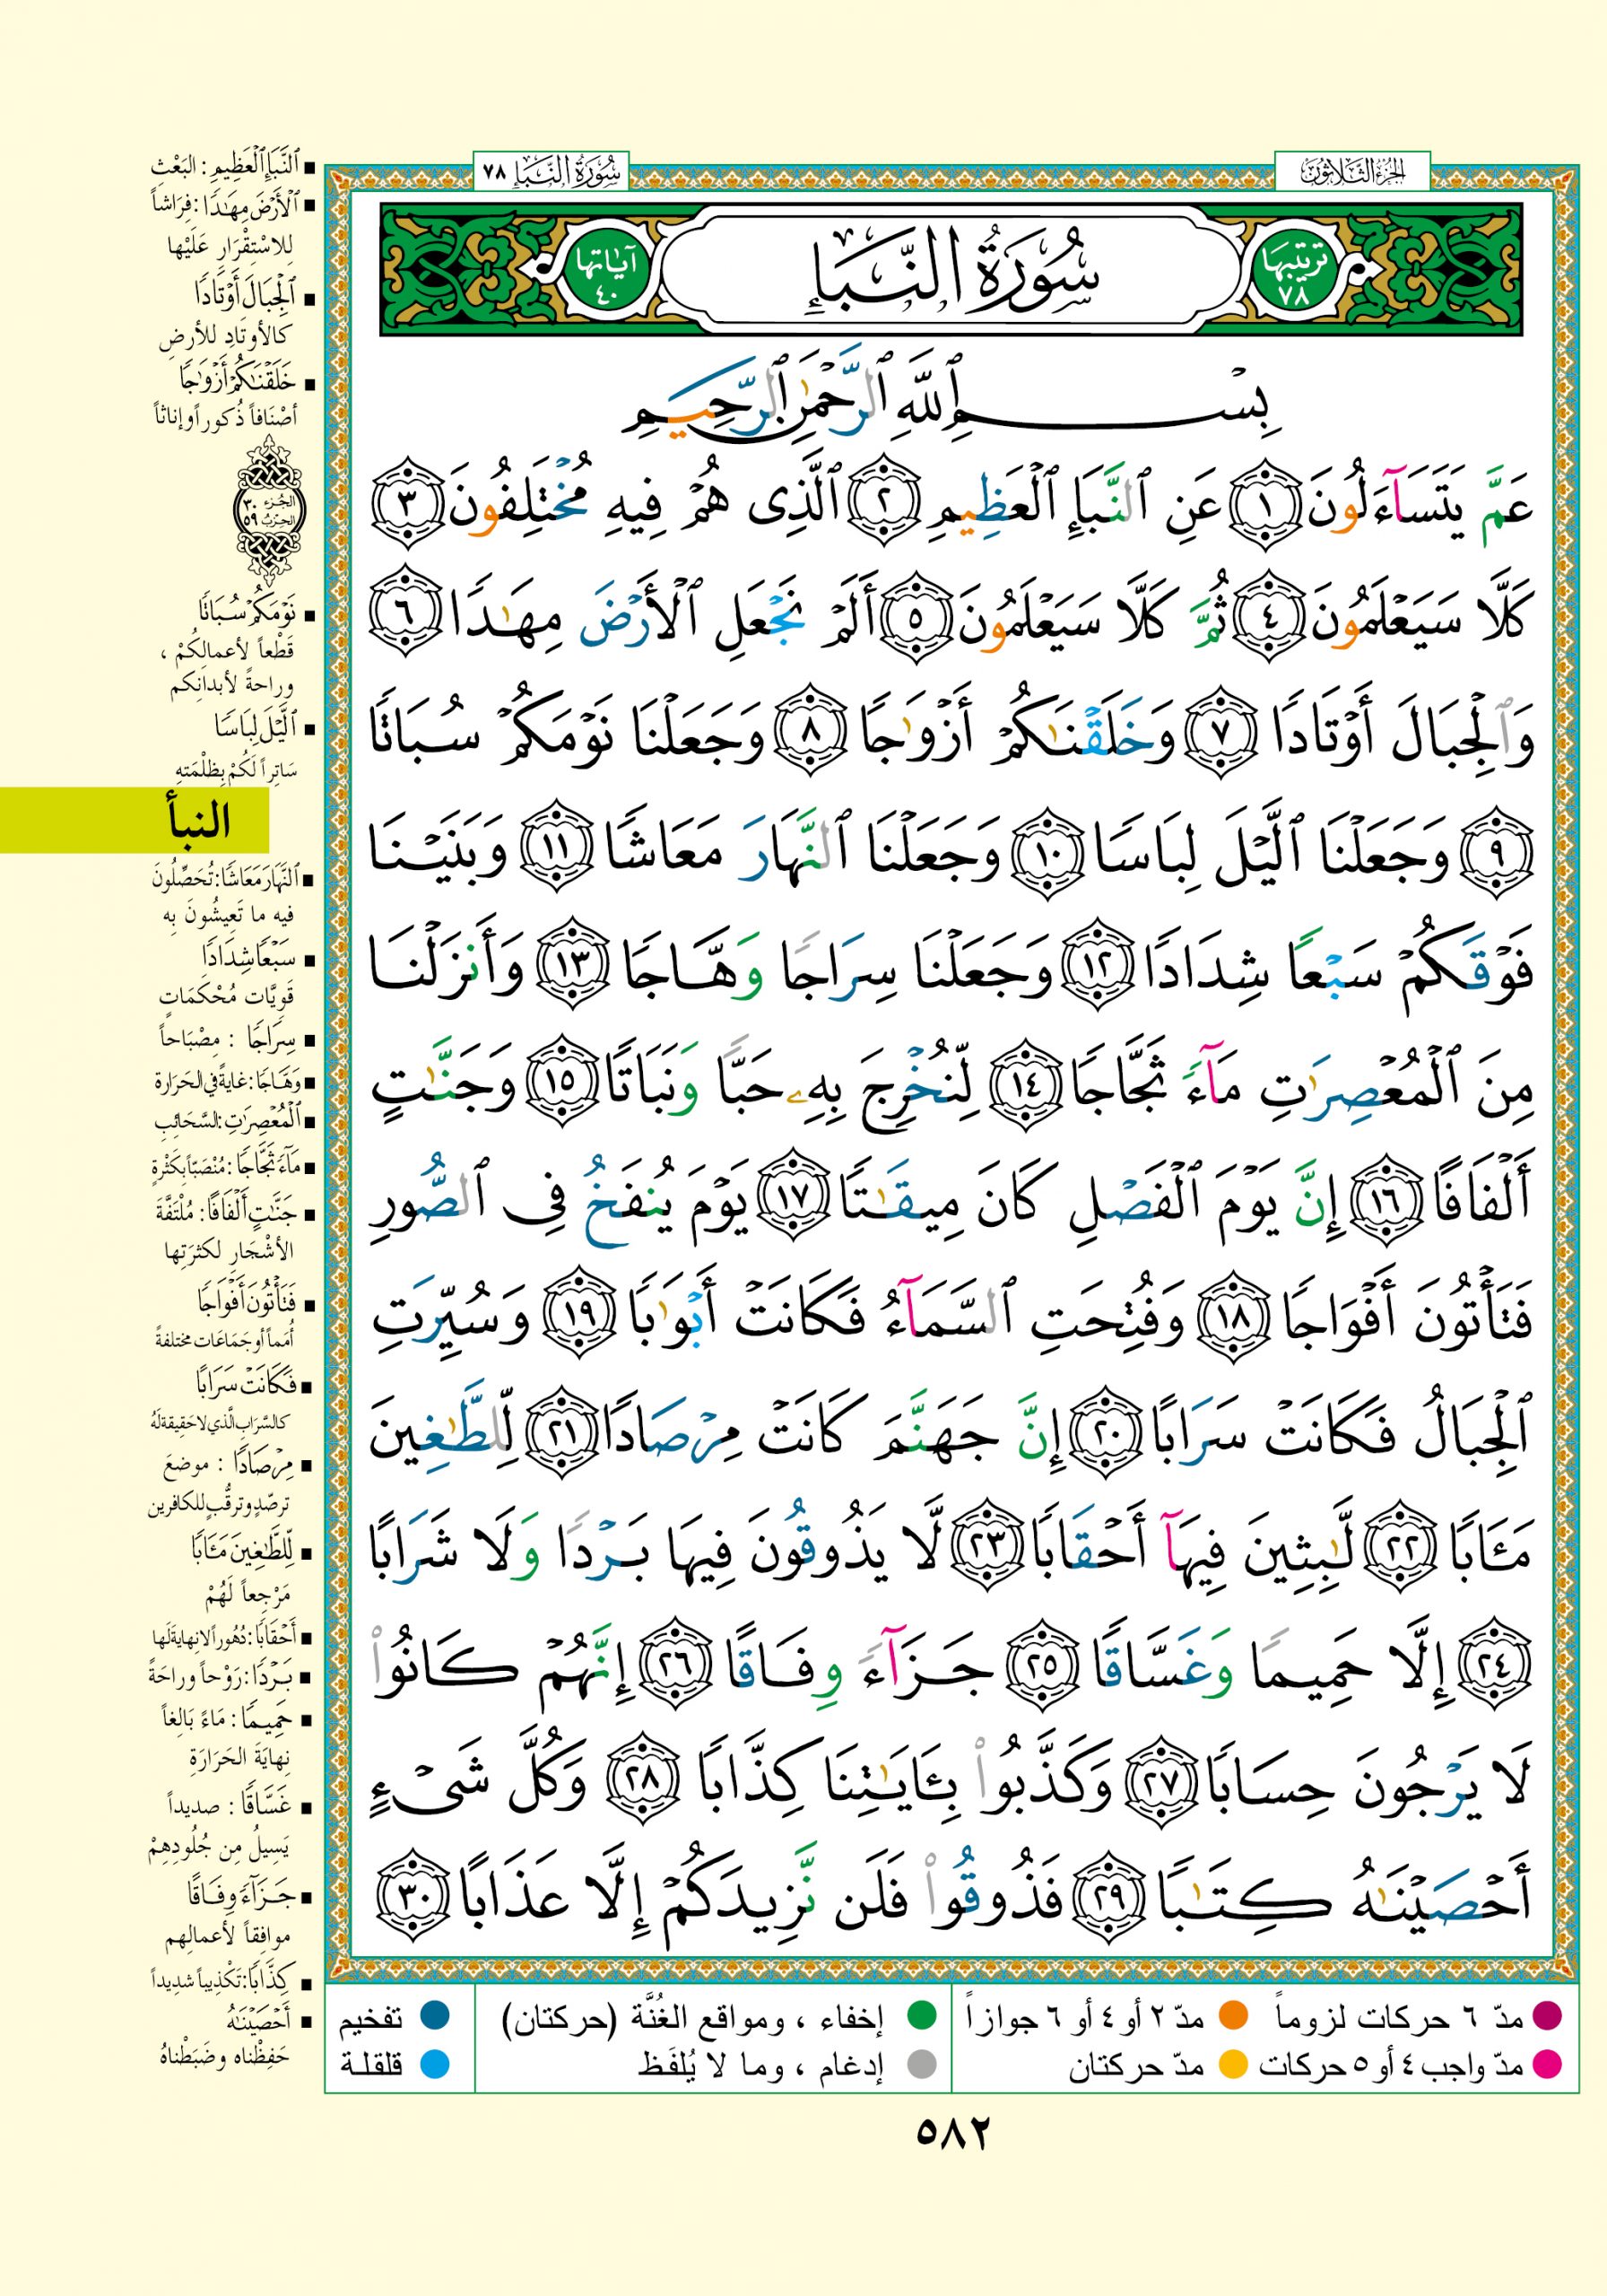 الجزء الثلاثون
سورة النبإ ٧٨
ترتيبها ٧٨
سُورَةُ النَّبَإِ
آياتها ٤٠
بِسْمِ ٱللَّهِ ٱلرَّحْمَٰنِ ٱلرَّحِيمِ
عَمَّ يَتَسَآءَلُونَ ١ عَنِ ٱلنَّبَإِ ٱلْعَظِيمِ ٢ ٱلَّذِى هُمْ فِيهِ مُخْتَلِفُونَ ٣
كَلَّا سَيَعْلَمُونَ ٤ ثُمَّ كَلَّا سَيَعْلَمُونَ ٥ أَلَمْ نَجْعَلِ ٱلْأَرْضَ مِهَٰدًا ٦
وَٱلْجِبَالَ أَوْتَادًا ٧ وَخَلَقْنَٰكُمْ أَزْوَٰجًا ٨ وَجَعَلْنَا نَوْمَكُمْ سُبَاتًا
٩ وَجَعَلْنَا ٱلَّيْلَ لِبَاسًا ١٠ وَجَعَلْنَا ٱلنَّهَارَ مَعَاشًا ١١ وَبَنَيْنَا
فَوْقَكُمْ سَبْعًا شِدَادًا ١٢ وَجَعَلْنَا سِرَاجًا وَهَّاجًا ١٣ وَأَنزَلْنَا
مِنَ ٱلْمُعْصِرَٰتِ مَآءً ثَجَّاجًا ١٤ لِّنُخْرِجَ بِهِۦ حَبًّا وَنَبَاتًا ١٥ وَجَنَّٰتٍ
أَلْفَافًا ١٦ إِنَّ يَوْمَ ٱلْفَصْلِ كَانَ مِيقَٰتًا ١٧ يَوْمَ يُنفَخُ فِى ٱلصُّورِ
فَتَأْتُونَ أَفْوَاجًا ١٨ وَفُتِحَتِ ٱلسَّمَآءُ فَكَانَتْ أَبْوَٰبًا ١٩ وَسُيِّرَتِ
ٱلْجِبَالُ فَكَانَتْ سَرَابًا ٢٠ إِنَّ جَهَنَّمَ كَانَتْ مِرْصَادًا ٢١ لِّلطَّٰغِينَ
مَـَٔابًا ٢٢ لَّٰبِثِينَ فِيهَآ أَحْقَابًا ٢٣ لَّا يَذُوقُونَ فِيهَا بَرْدًا وَلَا شَرَابًا
٢٤ إِلَّا حَمِيمًا وَغَسَّاقًا ٢٥ جَزَآءً وِفَاقًا ٢٦ إِنَّهُمْ كَانُوا۟
لَا يَرْجُونَ حِسَابًا ٢٧ وَكَذَّبُوا۟ بِـَٔايَٰتِنَا كِذَّابًا ٢٨ وَكُلَّ شَىْءٍ
أَحْصَيْنَٰهُ كِتَٰبًا ٢٩ فَذُوقُوا۟ فَلَن نَّزِيدَكُمْ إِلَّا عَذَابًا ٣٠
ٱلنَّبَإِ ٱلْعَظِيمِ : البَعْثِ
ٱلْأَرْضَ مِهَٰدًا : فِرَاشاً
لِلاسْتِقْرَارِ عَلَيْها
ٱلْجِبَالَ أَوْتَادًا
كالأوتَادِ للأرضِ
خَلَقْنَٰكُمْ أَزْوَٰجًا
أصْنَافاً ذُكور أو إناثاً
الجزء ٣٠
الحزب ٥٩
نَوْمَكُمْ سُبَاتًا
قَطْعاً لأعمالِكُمْ ،
وراحةً لأبدانِكم
ٱلَّيْلَ لِبَاسًا
سَاتِراً لَكُمْ بِظُلْمَتهِ
النبأ
ٱلنَّهَارَ مَعَاشًا : تُحَصِّلُونَ
فيه ما تَعِيشُونَ بِه
سَبْعًا شِدَادًا
قَوِيَّات مُحْكَمَاتٍ
سِرَاجًا : مِصْبَاحاً
وَهَّاجًا : غاية في الحَرَارة
ٱلْمُعْصِرَٰتِ : السَّحَائِبِ
مَآءً ثَجَّاجًا : مُنْصَبّاً بِكَثْرةٍ
جَنَّٰتٍ أَلْفَافًا : مُلْتَفَّةَ
الأشْجَارِ لكثرَتِها
فَتَأْتُونَ أَفْوَاجًا
أُمَماً أو جَمَاعَات مختلفةً
فَكَانَتْ سَرَابًا
كالسَّرَاب الَّذي لا حَقِيقة لَهُ
مِرْصَادًا : موضعَ
ترصّدٍ وترقُّبٍ للكافرين
لِّلطَّٰغِينَ مَـَٔابًا
مَرْجِعاً لَهُمْ
أَحْقَابًا : دُهُوراً لا نِهايةَ لَها
بَرْدًا : رَوْحاً وراحَةً
حَمِيمًا : مَاءً بَالِغاً
نِهايَةَ الحَرَارَةِ
غَسَّاقًا : صديداً
يَسِيلُ مِن جُلُودِهِمْ
جَزَآءً وِفَاقًا
موافِقاً لأعمالِهم
كِذَّابًا : تَكْذِيباً شديداً
أَحْصَيْنَٰهُ
حَفِظْناه وضَبَطْناهُ
مدّ ٦ حركات لزوماً
مدّ ٢ أو ٤ أو ٦ جوازاً
إخفاء ، ومواقع الغُنَّة (حركتان)
تفخيم
مدّ واجب ٤ أو ٥ حركات
مدّ حركتان
إدغام ، وما لا يُلفَظ
قلقلة
٥٨٢